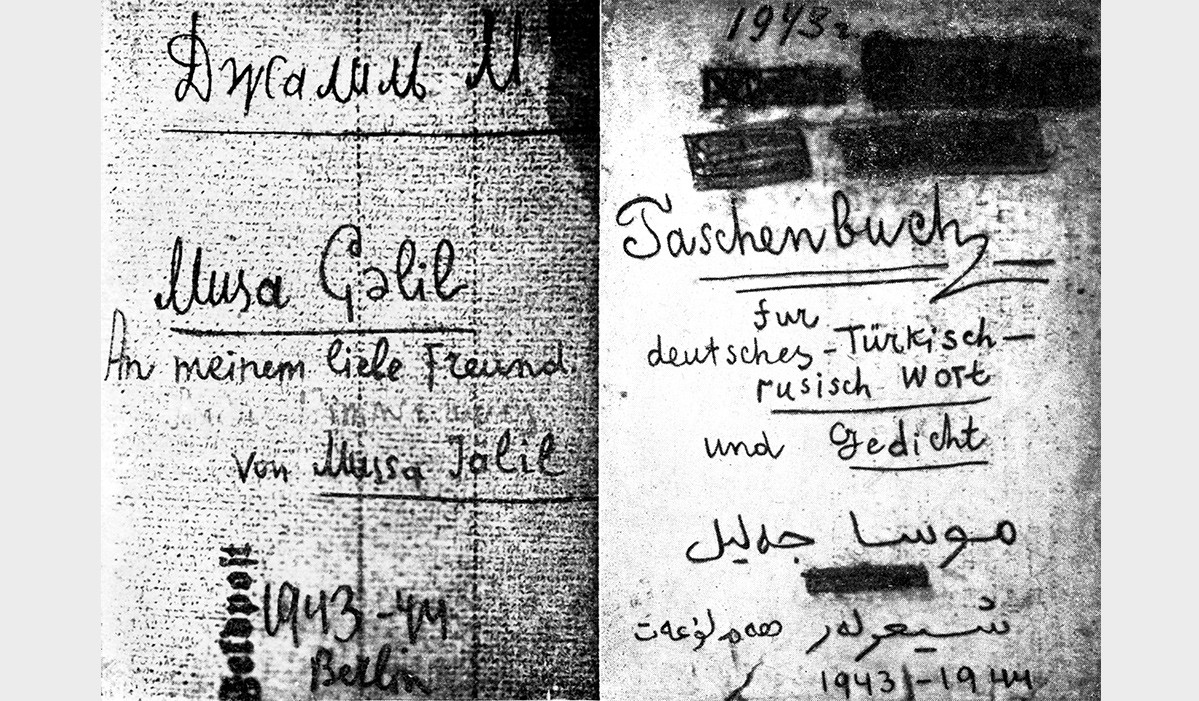 Джалиль М.
Musa Çəlil
An meinem liebe Freund.
von Mussa Jalil
1943-44
Berlin
Feldpost
1943 г.
Taschenbuch
fur
deutsches-Türkisch-
rusisch Wort
und Gedicht
موسا جەلیل
شیعرلەر هەم لوغەت
1943-1944